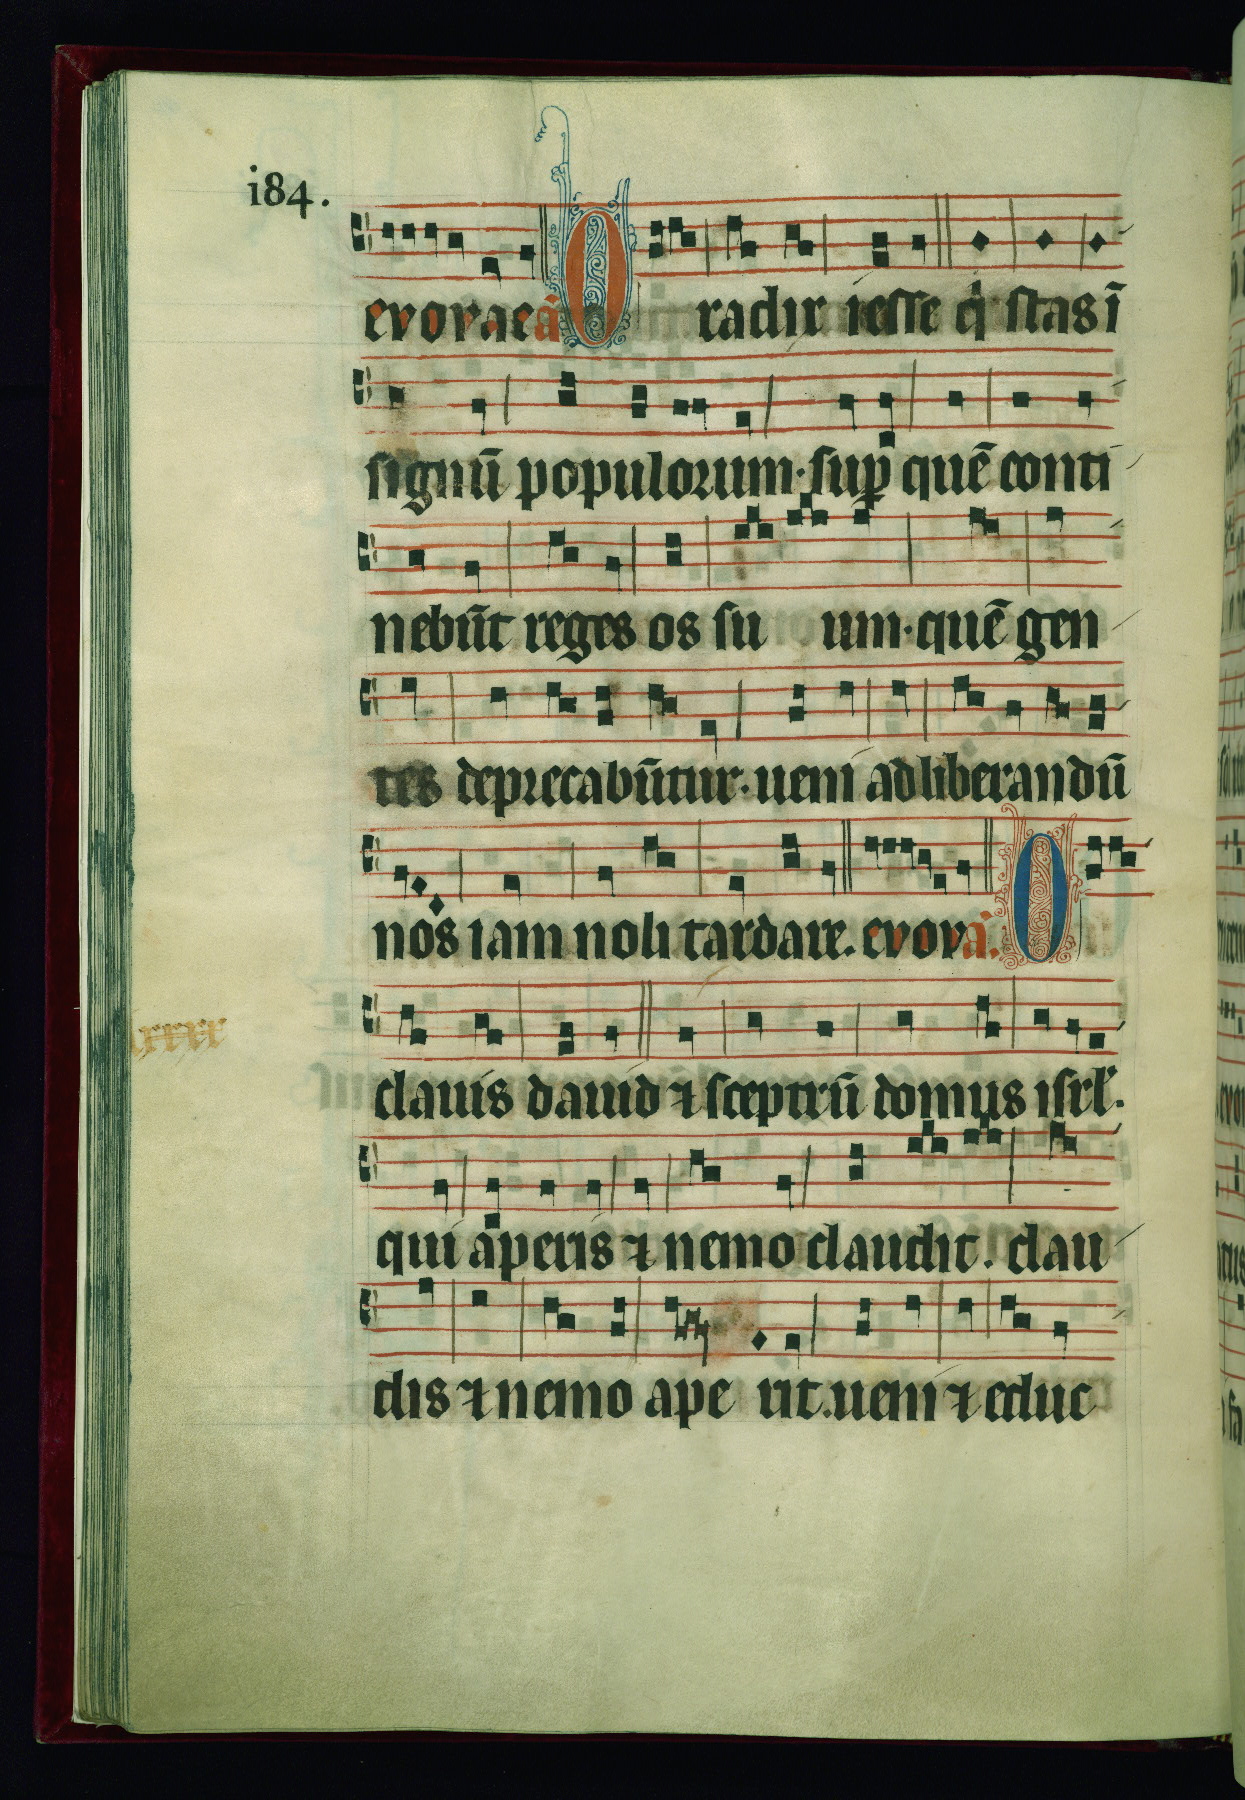 i84.
evovae a͞ O radix iesse q̇ stas ī
signū populorum· sup̱ quē conti
nebūt reges os su um· quē gen
tes deprecabūtur· ueni ad liberandū
nos iam noli tardare. evov a͞. O
clauis dauid ⁊ sceptrū domus isrl̓.
qui aperis ⁊ nemo claudit. clau
dis ⁊ nemo ape rit. ueni ⁊ educ